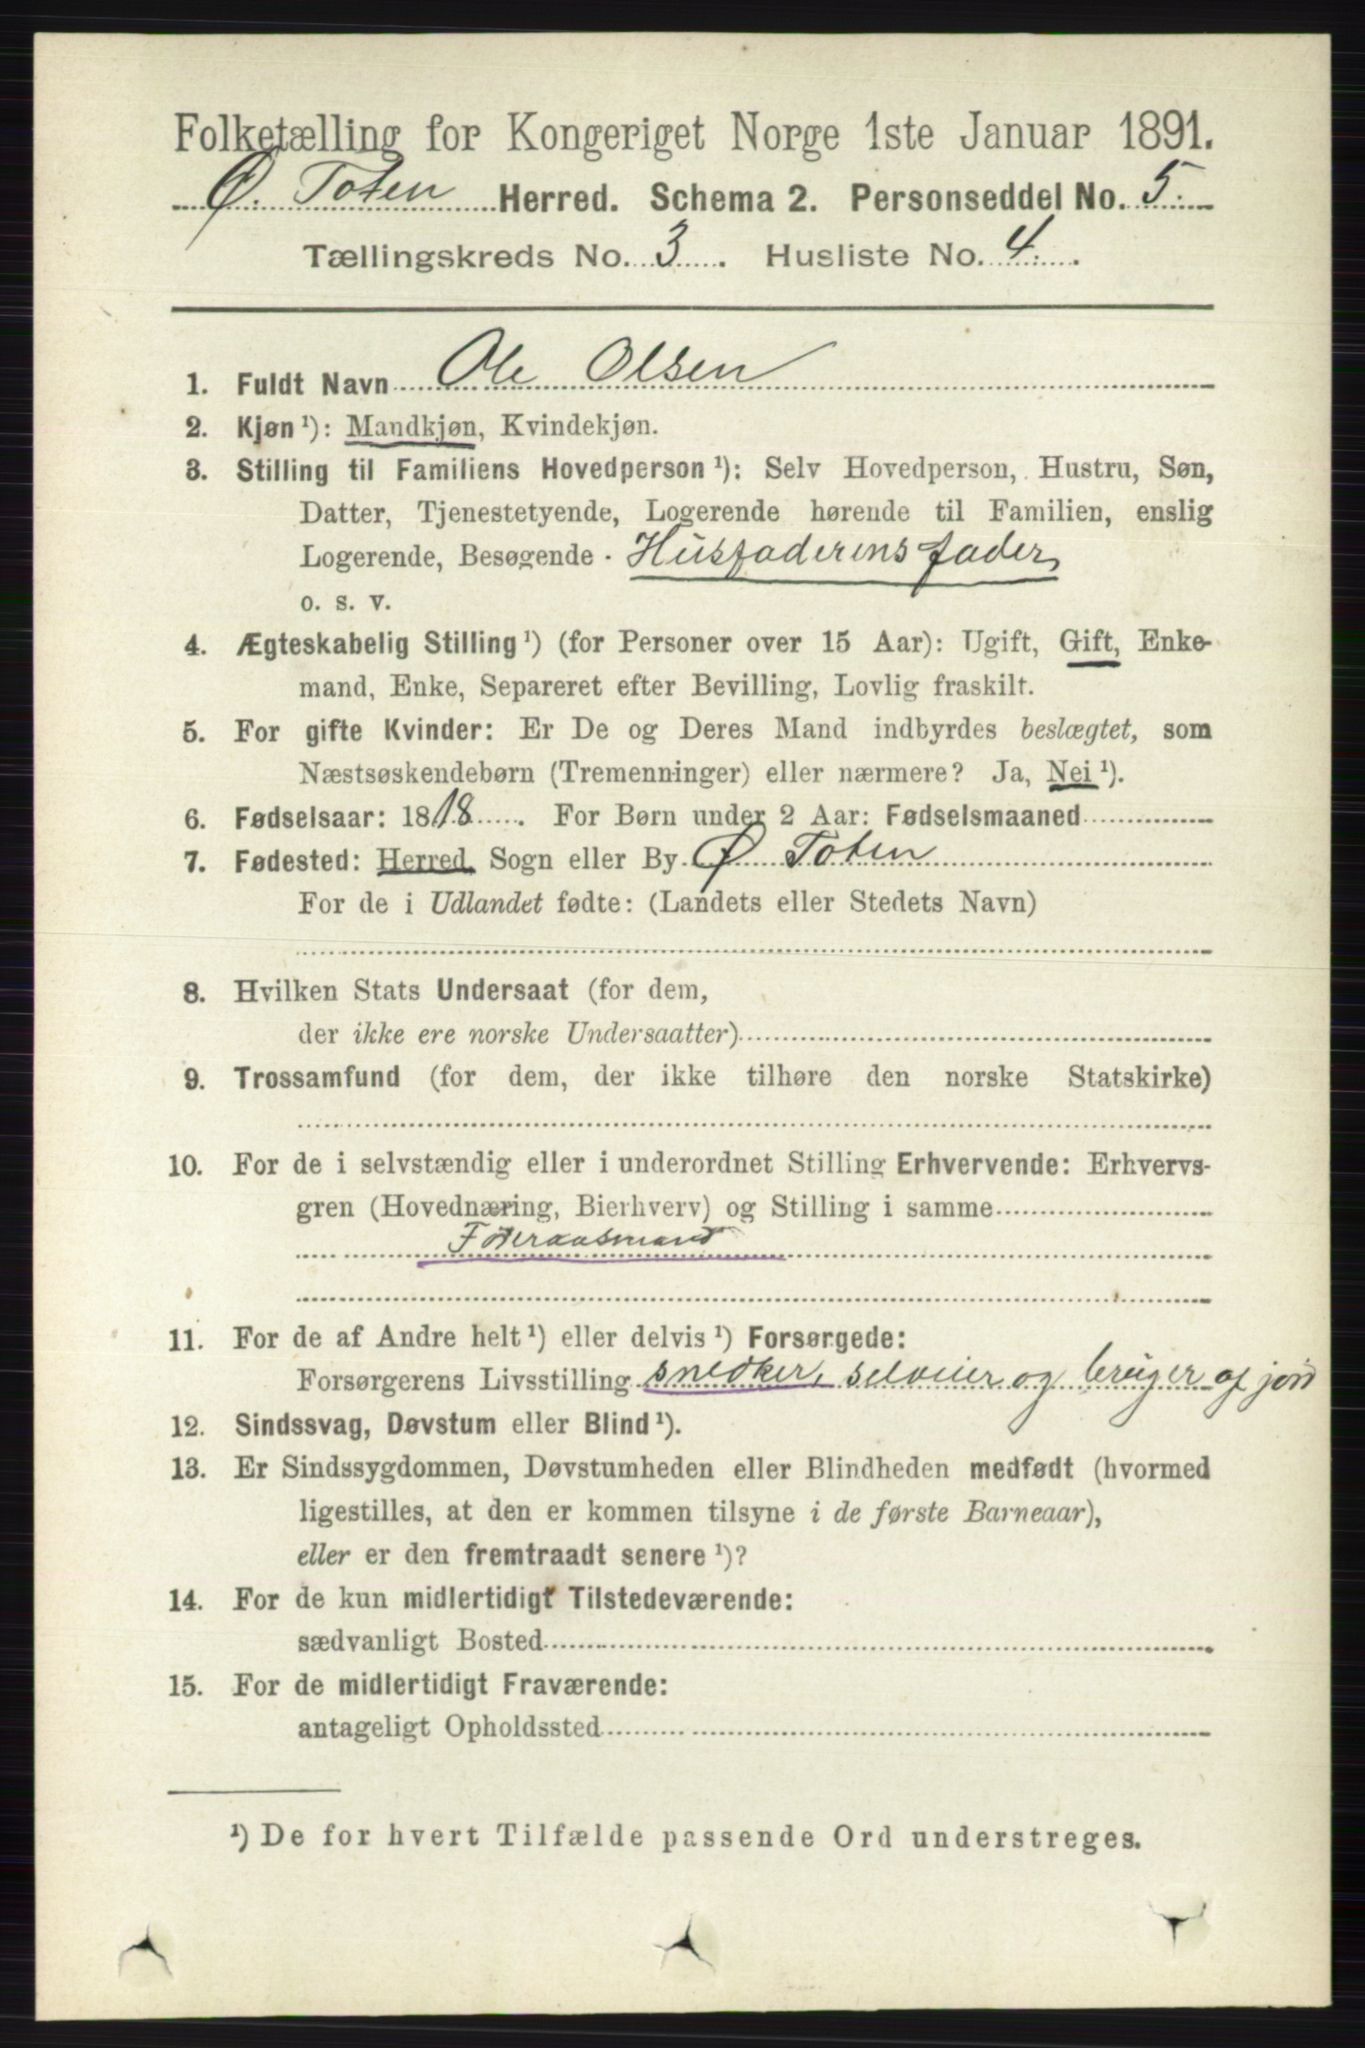 Folketælling for Kongeriget Norge 1ste Januar 1891.
Ø. Toten Herred. Schema 2. Personseddel No. 5.
Tællingskreds No. 3. Husliste No. 4.
1. Fuldt Navn Ole Olsen
2. Kjøn ¹): Mandkjøn, Kvindekjøn.
3. Stilling til Familiens Hovedperson ¹): Selv Hovedperson, Hustru, Søn,
Datter, Tjenestetyende, Logerende hørende til Familien, enslig
Logerende, Besøgende · Husfaderens fader
o. s. v.
4. Ægteskabelig Stilling ¹) (for Personer over 15 Aar): Ugift, Gift, Enke-
mand, Enke, Separeret efter Bevilling, Lovlig fraskilt.
5. For gifte Kvinder: Er De og Deres Mand indbyrdes beslægtet, som
Næstsøskendebørn (Tremenninger) eller nærmere? Ja, Nei ¹).
6. Fødselsaar: 1818. For Børn under 2 Aar: Fødselsmaaned
7. Fødested: Herred, Sogn eller By Ø Toten
For de i Udlandet fødte: (Landets eller Stedets Navn)
8. Hvilken Stats Undersaat (for dem,
der ikke ere norske Undersaatter)
9. Trossamfund (for dem, der ikke tilhøre den norske Statskirke)
10. For de i selvstændig eller i underordnet Stilling Erhvervende: Erhvervs-
gren (Hovednæring, Bierhverv) og Stilling i samme
Føderaadsmand
11. For de af Andre helt ¹) eller delvis ¹) Forsørgede:
Forsørgerens Livsstilling snedker, selveier og bruger af jord
12. Sindssvag, Døvstum eller Blind ¹).
13. Er Sindssygdommen, Døvstumheden eller Blindheden medfødt (hvormed
ligestilles, at den er kommen tilsyne i de første Barneaar),
eller er den fremtraadt senere ¹)?
14. For de kun midlertidigt Tilstedeværende:
sædvanligt Bosted
15. For de midlertidigt Fraværende:
antageligt Opholdssted
¹) De for hvert Tilfælde passende Ord understreges.